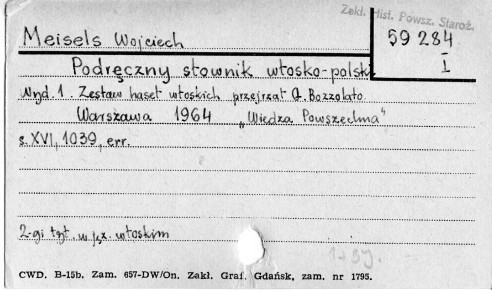 Zakł. Hist. Powsz. Staroż.
Meisels Wojciech
59 284
I
Podręczny słownik włosko-polski
Wyd. 1. Zestaw haseł włoskich przejrzał G. Bozzolato.
Warszawa 1964 „Wiedza Powszechna"
s. XVI, 1039, err.
2-gi tyt. w jęz. włoskim
CWD. B-15b. Zam. 657-DW/On. Zakł. Graf. Gdańsk, zam. nr 1795.